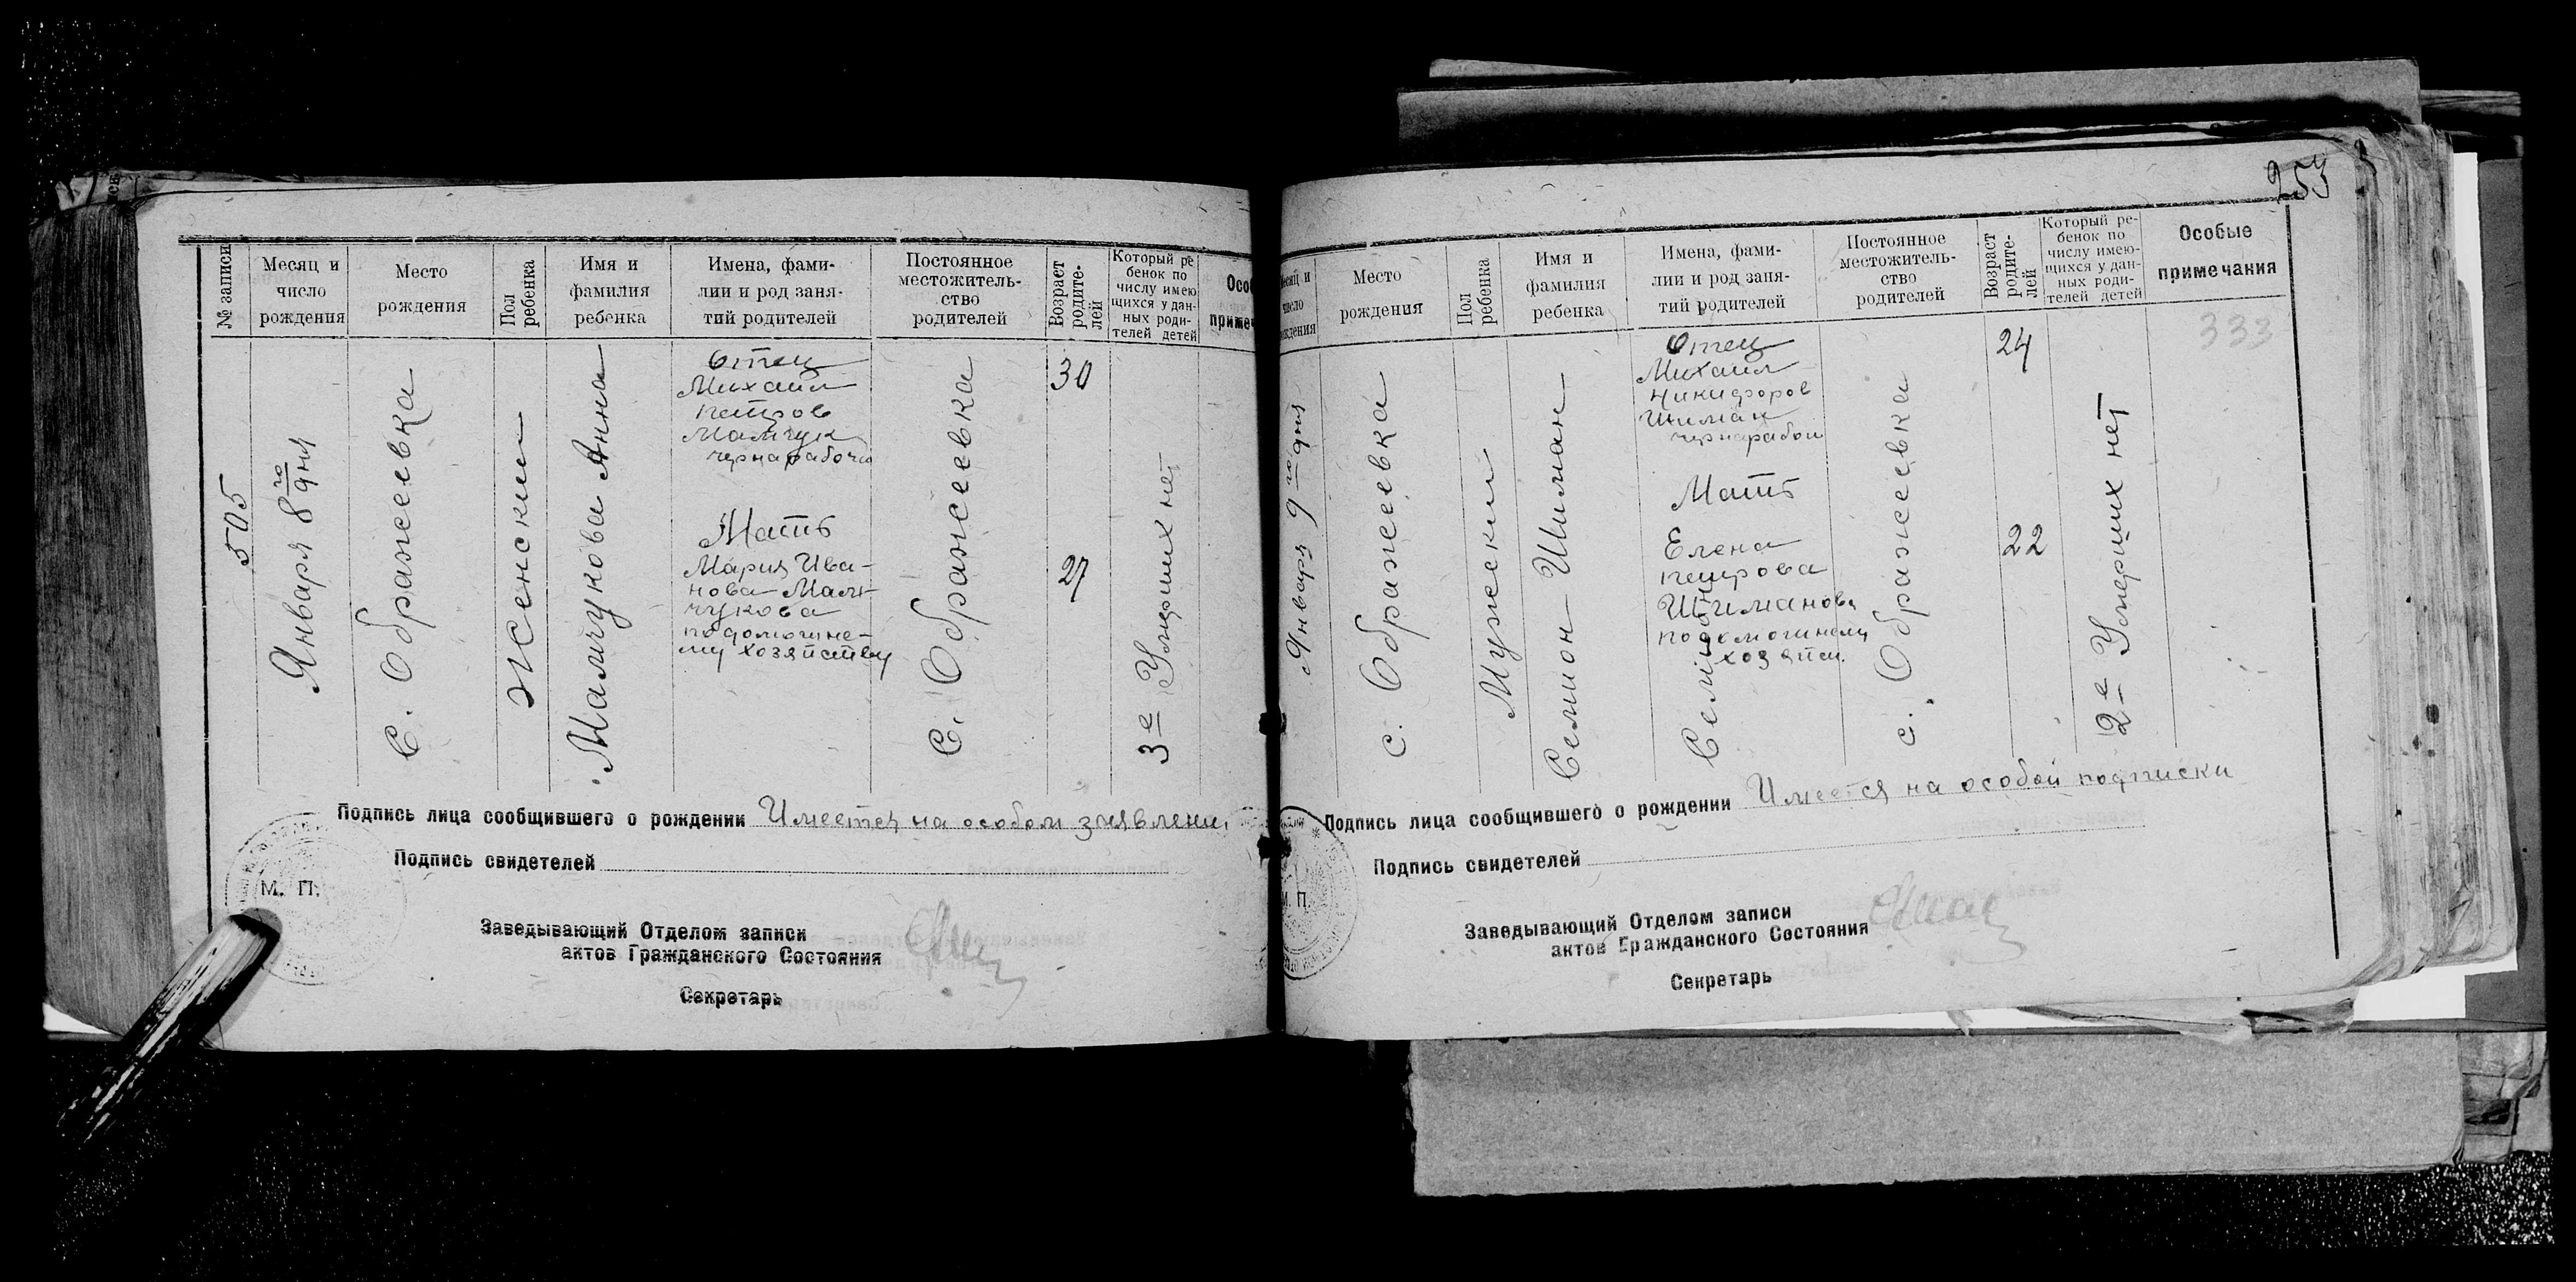 № записи
Месяц и
число
рождения
Место
рождения
Пол
ребенка
Имя и
фамилия
ребенка
Имена, фами-
лии и род заня-
тий родителей
Постоянное
местожитель-
ство
родителей
Возраст
родите-
лей
Который ре
бенок по
числу имею
щихся у дан-
ных роди-
телей детей
Осо
приме
505
Января 8 го дня
С. Ображеевка
Женский
Мамчукова Анна
Отец
Михаил
Петров
Мамчук
чернорабочи
Мать
Мария Ива-
нова Мам-
чукова
по домашне-
му хозяйству
С. Ображеевка
30
27
3е Умерших нет
Подпись лица сообщившего о рождении Имеется на особом заявлени
Подпись свидетелей
М. П.
Заведывающий Отделом записи
актов Гражданского Состояния
Секретарь
253
Место
рождения
Пол
ребенка
Имя и
фамилия
ребенка
Имена, фами-
лии и род заня-
тий родителей
Постоянное
местожитель-
ство
родителей
Возраст
родите-
лей
Который ре-
бенок по
числу имею-
щихся у дан-
ных роди-
телей детей
Особые
примечания
333
Января 9 го дня
с. Ображеевка
Мужеский
Семион Шиман
Отец
Михаил
Никифоров
Шиман
чернорабоч
Мать
Елена
Петрова
Шиманова
по домашнему
хозяйст.
с. Ображеевка
24
22
2е Умерших нет
Подпись лица сообщившего о рождении Имеется на особой подписки
Подпись свидетелей
М. П.
Заведывающий Отделом записи
актов Гражданского Состояния
Секретарь